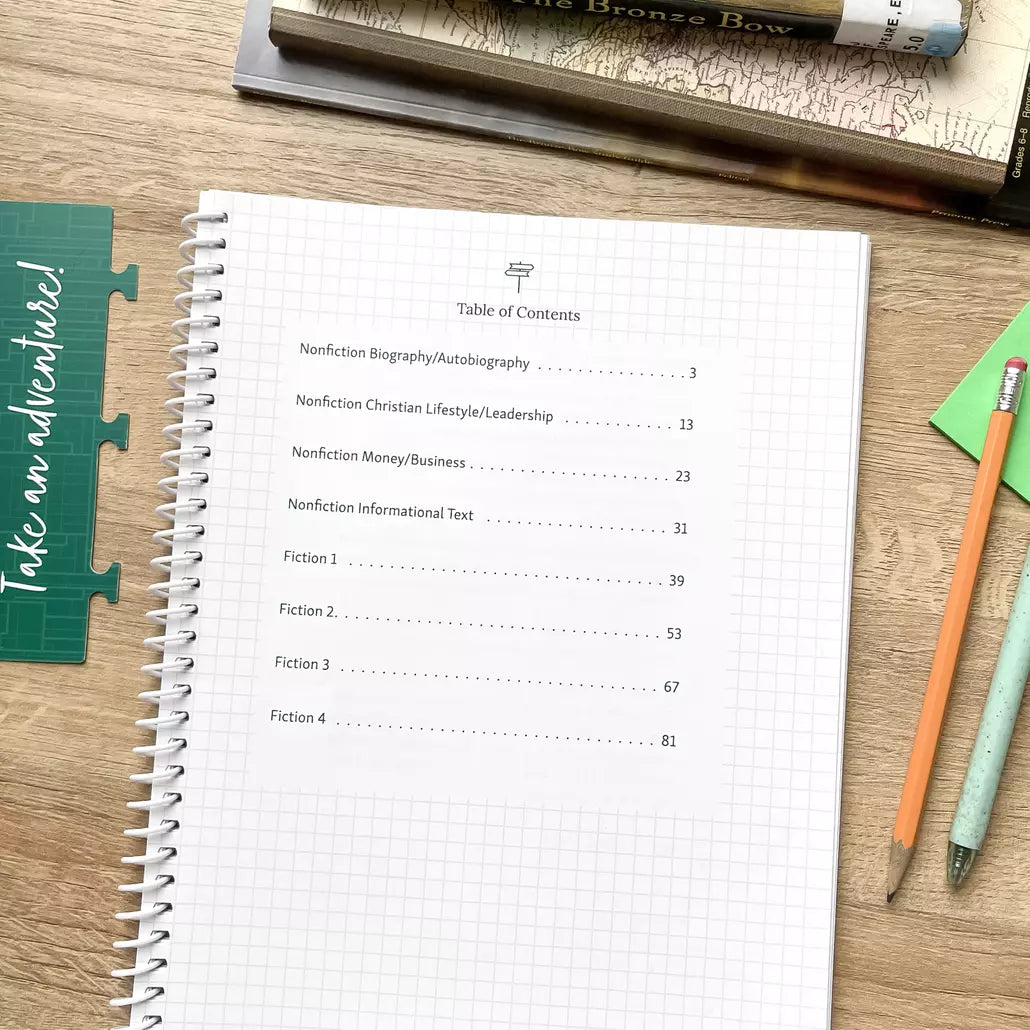 The Bronze Bow
SPEARE, E
5.0
Grades 6-8
Take an adventure!
Table of Contents
Nonfiction Biography/Autobiography . . . . . . . . . . . . . . . 3
Nonfiction Christian Lifestyle/Leadership . . . . . . . . . . 13
Nonfiction Money/Business . . . . . . . . . . . . . . . . . . . . 23
Nonfiction Informational Text . . . . . . . . . . . . . . . . . . 31
Fiction 1 . . . . . . . . . . . . . . . . . . . . . . . . . . . . . . . 39
Fiction 2. . . . . . . . . . . . . . . . . . . . . . . . . . . . . . . . 53
Fiction 3 . . . . . . . . . . . . . . . . . . . . . . . . . . . . . . . 67
Fiction 4 . . . . . . . . . . . . . . . . . . . . . . . . . . . . . . . 81